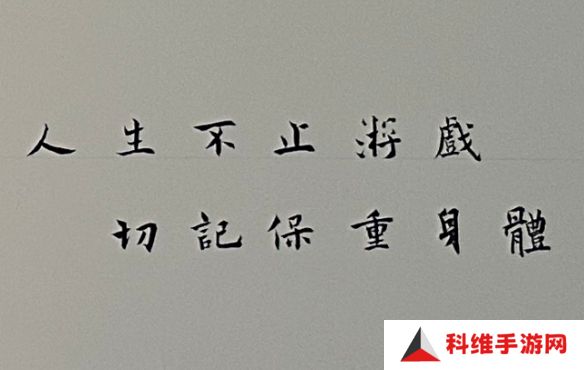 人生不止游戲
切記保重身體
科维手游网